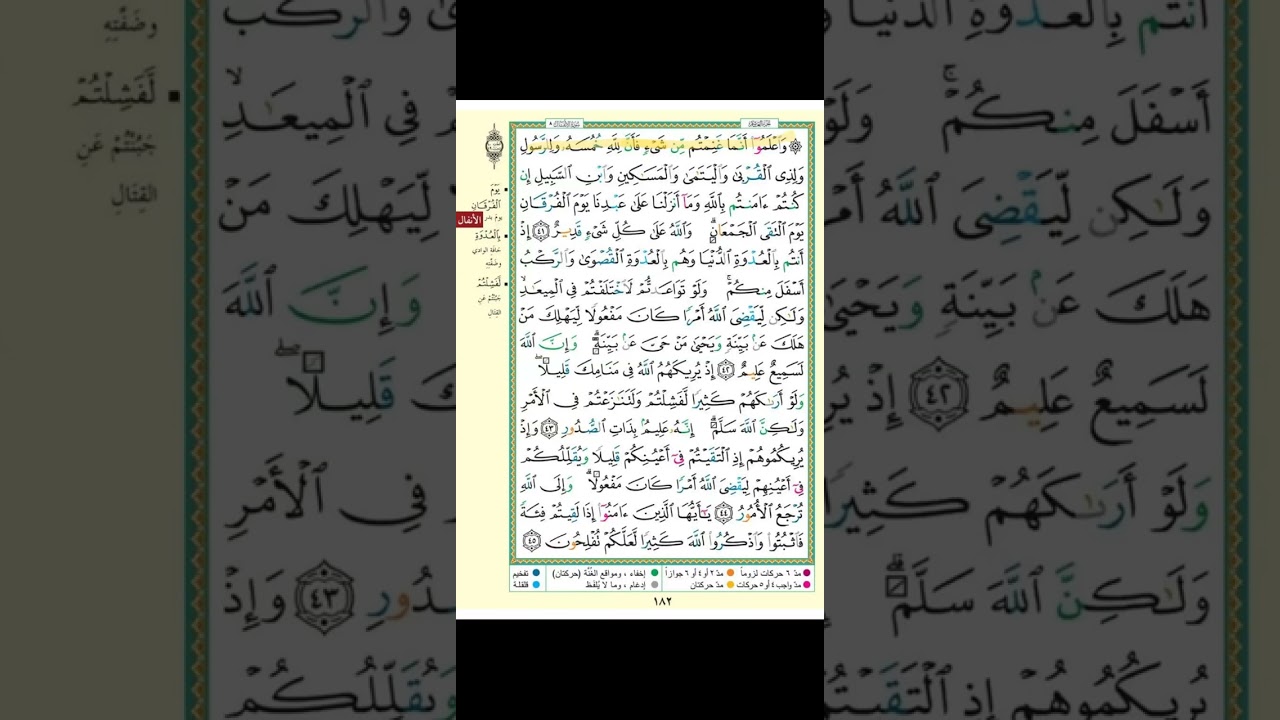 ۞ وَٱعْلَمُوٓا۟ أَنَّمَا غَنِمْتُم مِّن شَىْءٍ فَأَنَّ لِلَّهِ خُمُسَهُۥ وَلِلرَّسُولِ
وَلِذِى ٱلْقُرْبَىٰ وَٱلْيَتَٰمَىٰ وَٱلْمَسَٰكِينِ وَٱبْنِ ٱلسَّبِيلِ إِن
كُنتُمْ ءَامَنتُم بِٱللَّهِ وَمَآ أَنزَلْنَا عَلَىٰ عَبْدِنَا يَوْمَ ٱلْفُرْقَانِ
يَوْمَ ٱلْتَقَى ٱلْجَمْعَانِ ۗ وَٱللَّهُ عَلَىٰ كُلِّ شَىْءٍ قَدِيرٌ ٤١ إِذْ
أَنتُم بِٱلْعُدْوَةِ ٱلدُّنْيَا وَهُم بِٱلْعُدْوَةِ ٱلْقُصْوَىٰ وَٱلرَّكْبُ
أَسْفَلَ مِنكُمْ ۚ وَلَوْ تَوَاعَدتُّمْ لَٱخْتَلَفْتُمْ فِى ٱلْمِيعَٰدِ ۙ
وَلَٰكِن لِّيَقْضِىَ ٱللَّهُ أَمْرًا كَانَ مَفْعُولًا لِّيَهْلِكَ مَنْ
هَلَكَ عَنۢ بَيِّنَةٍ وَيَحْيَىٰ مَنْ حَىَّ عَنۢ بَيِّنَةٍ ۗ وَإِنَّ ٱللَّهَ
لَسَمِيعٌ عَلِيمٌ ٤٢ إِذْ يُرِيكَهُمُ ٱللَّهُ فِى مَنَامِكَ قَلِيلًا ۖ
وَلَوْ أَرَىٰكَهُمْ كَثِيرًا لَّفَشِلْتُمْ وَلَتَنَٰزَعْتُمْ فِى ٱلْأَمْرِ
وَلَٰكِنَّ ٱللَّهَ سَلَّمَ ۗ إِنَّهُۥ عَلِيمٌۢ بِذَاتِ ٱلصُّدُورِ ٤٣ وَإِذْ
يُرِيكُمُوهُمْ إِذِ ٱلْتَقَيْتُمْ فِىٓ أَعْيُنِكُمْ قَلِيلًا وَيُقَلِّلُكُمْ
فِىٓ أَعْيُنِهِمْ لِيَقْضِىَ ٱللَّهُ أَمْرًا كَانَ مَفْعُولًا ۗ وَإِلَى ٱللَّهِ
تُرْجَعُ ٱلْأُمُورُ ٤٤ يَٰٓأَيُّهَا ٱلَّذِينَ ءَامَنُوٓا۟ إِذَا لَقِيتُمْ فِئَةً
فَٱثْبُتُوا۟ وَٱذْكُرُوا۟ ٱللَّهَ كَثِيرًا لَّعَلَّكُمْ تُفْلِحُونَ ٤٥
▪ يَوْمَ
ٱلْفُرْقَانِ
يوم بدر
الأنفال
▪ بِٱلْعُدْوَةِ
حافة الوادي
وضفّته
▪ لَّفَشِلْتُمْ
جَبُنْتُمْ عَنِ
القِتَالِ
● مدّ ٦ حركات لزوماً ● مدّ ٢ أو ٤ أو ٦ جوازاً ● إخفاء ، ومواقع الغُنَّة (حركتان) ● تفخيم
● مدّ واجب ٤ أو ٥ حركات ● مدّ حركتان ● إدغام ، وما لا يُلفَظ ● قلقلة
١٨٢